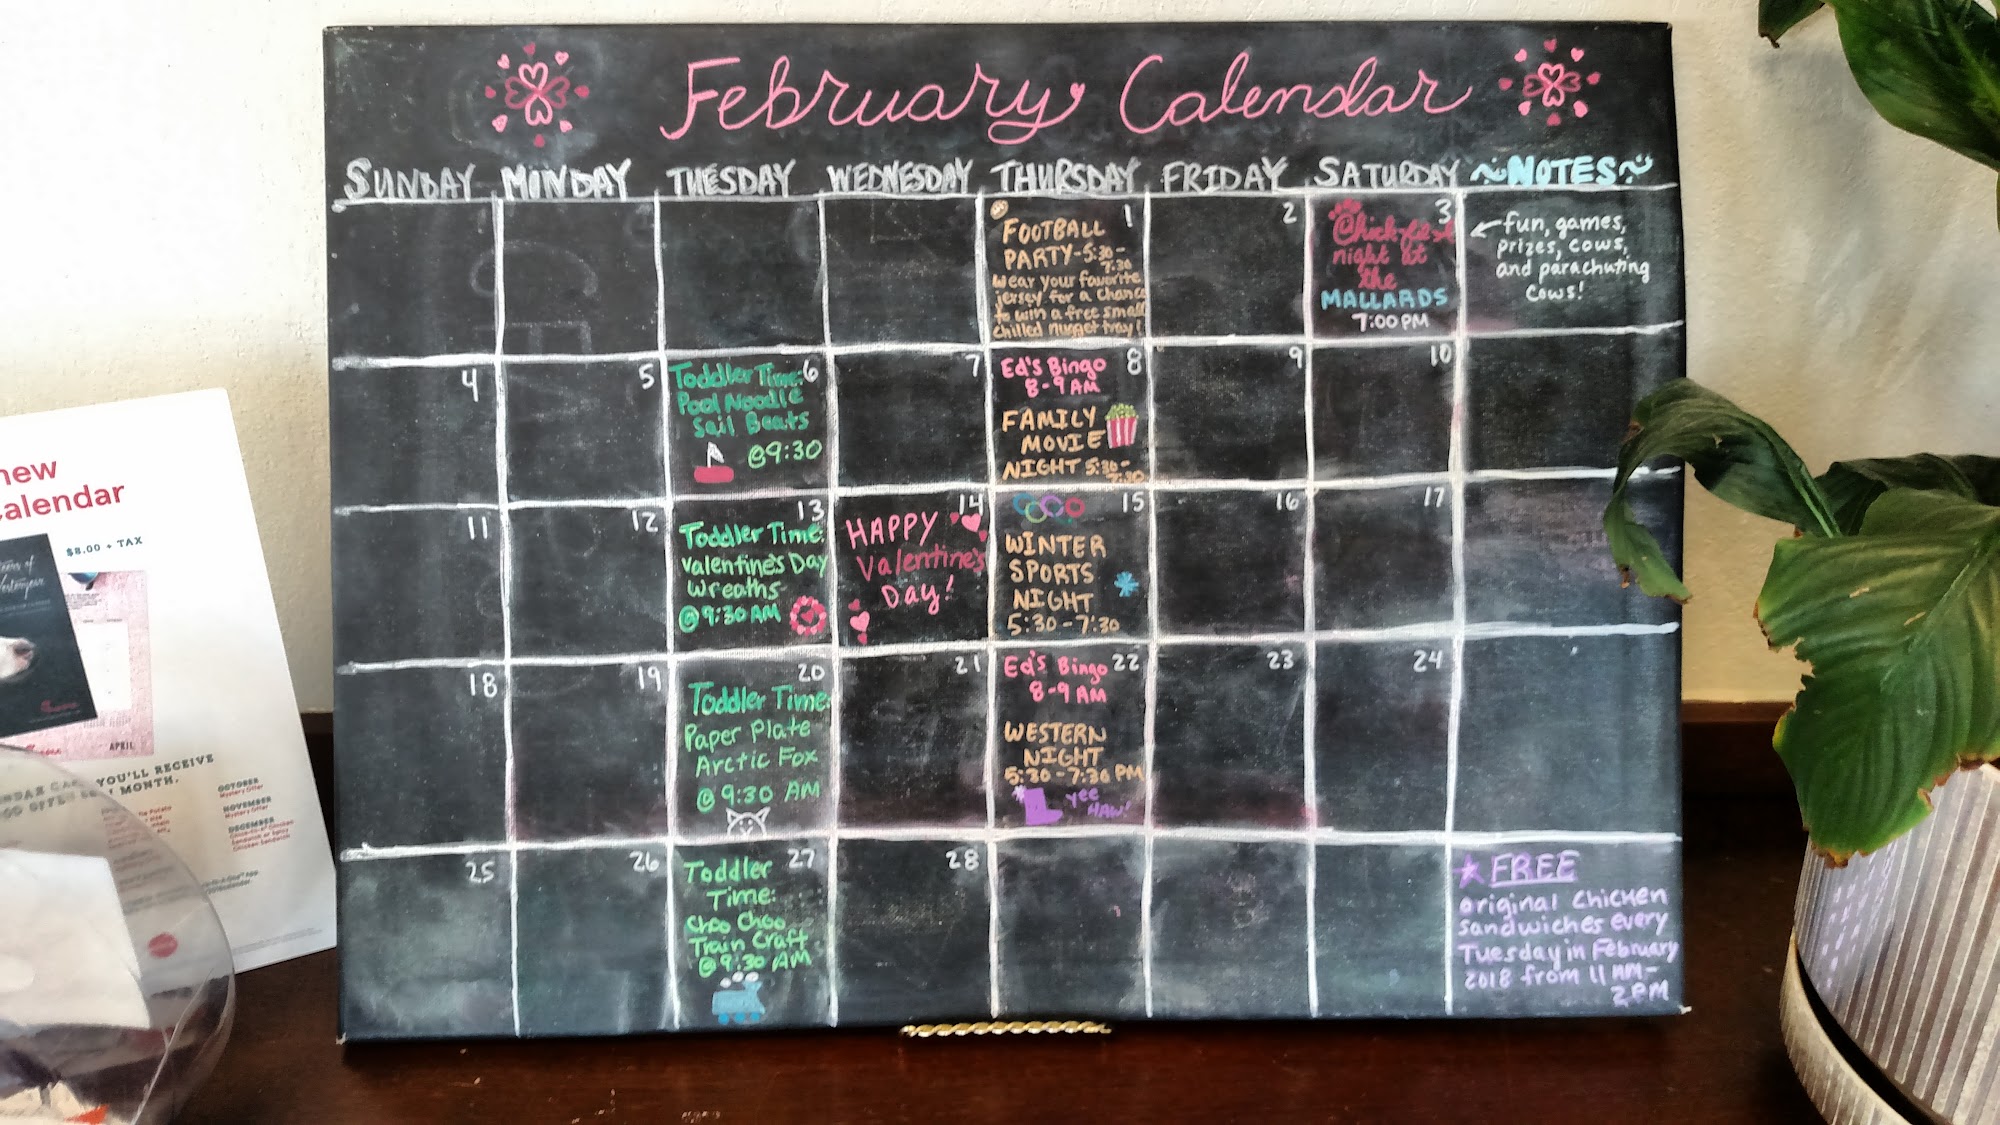 February Calendar
SUNDAY MONDAY TUESDAY WEDNESDAY THURSDAY FRIDAY SATURDAY ~NOTES~
1
FOOTBALL
PARTY-5:30-
7:30
Wear your favorite
jersey for a chance
to win a free small
chilled nugget tray!
2
3
Chick-fil-A
night at
the
MALLARDS
7:00 PM
fun, games,
prizes, cows,
and parachuting
cows!
4
5
6
Toddler Time:
Pool Noodle
Sail Boats
@9:30
7
8
Ed's Bingo
8-9 AM
FAMILY
MOVIE
NIGHT 5:30-
7:30
9
10
11
12
13
Toddler Time:
Valentine's Day
Wreaths
@ 9:30 AM
14
HAPPY
Valentine's
Day!
15
WINTER
SPORTS
NIGHT
5:30-7:30
16
17
18
19
20
Toddler Time:
Paper Plate
Arctic Fox
@ 9:30 AM
21
22
Ed's Bingo
8-9 AM
WESTERN
NIGHT
5:30-7:30 PM
yee
HAW!
23
24
25
26
27
Toddler
Time:
Choo Choo
Train Craft
@ 9:30 AM
28
FREE
original chicken
sandwiches every
Tuesday in February
2018 from 11 AM-
2 PM
new
calendar
$8.00 + TAX
APRIL
YOU'LL RECEIVE
MONTH.
OCTOBER
Mystery Offer
NOVEMBER
Mystery Offer
DECEMBER
Chick-fil-A® Chicken
Sandwich or Spicy
Chicken Sandwich